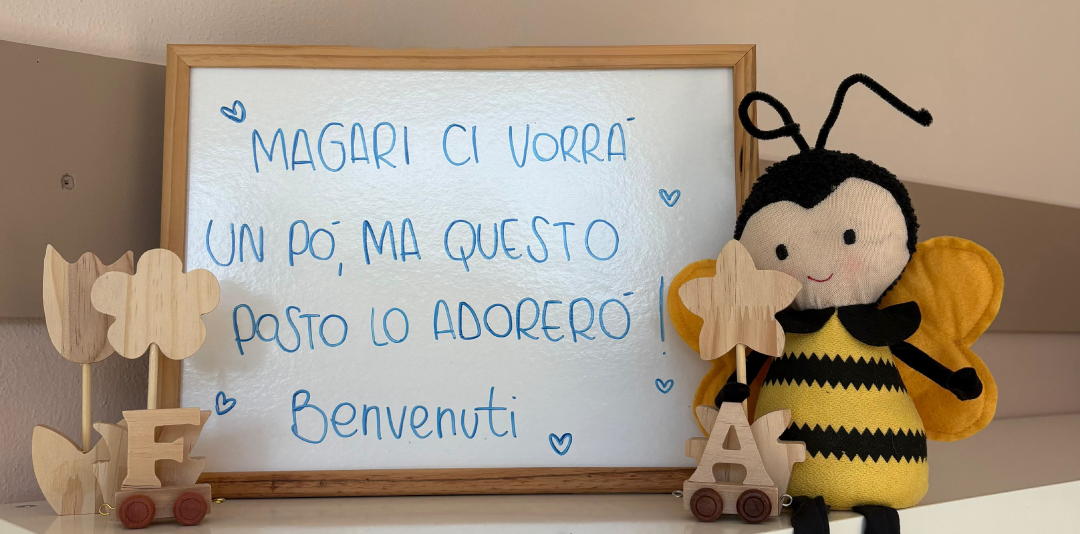 MAGARI CI VORRÁ
UN PÓ, MA QUESTO
POSTO LO ADORERÓ !
Benvenuti
F
A